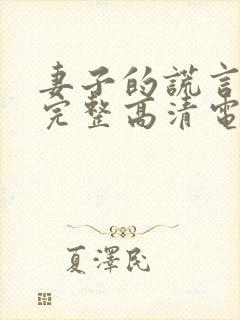 妻子的謊言
完整高清電
夏澤民